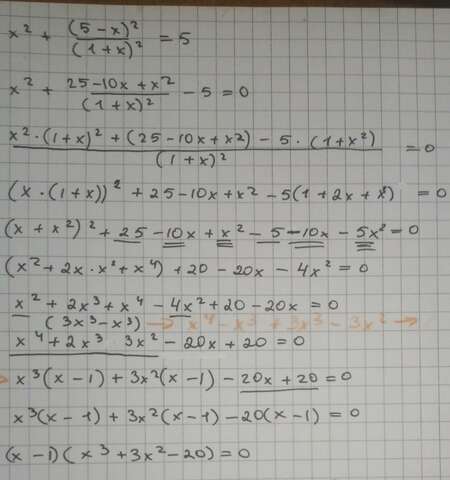 x² + (5-x)²/(1+x)² = 5
x² + 25-10x+x²/(1+x)² - 5 = 0
x²·(1+x)² + (25-10x+x2) - 5·(1+x²)/(1+x)² = 0
(x·(1+x))² + 25-10x+x² - 5(1+2x+x²) = 0
(x + x²)² + 25 - 10x + x² - 5 - 10x - 5x² = 0
(x² + 2x·x² + x⁴) + 20 - 20x - 4x² = 0
x² + 2x³ + x⁴ - 4x² + 20 - 20x = 0
(3x³-x³) → x⁴ - x³ + 3x³ - 3x² →
x⁴ + 2x³ 3x² - 20x + 20 = 0
→ x³(x-1) + 3x²(x-1) - 20x + 20 = 0
x³(x-1) + 3x²(x-1) - 20(x-1) = 0
(x-1)(x³+3x²-20) = 0